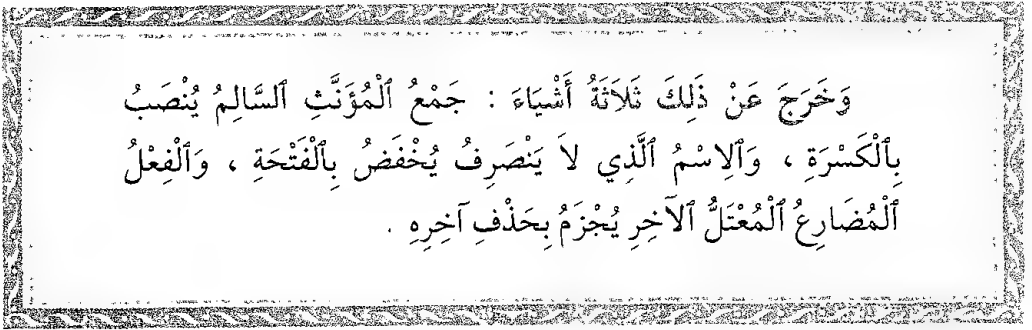 وَخَرَجَ عَنْ ذَلِكَ ثَلاَثَةُ أَشْيَاءَ : جَمْعُ ٱلْمُؤَنَّثِ ٱلسَّالِمُ يُنْصَبُ
بِٱلْكَسْرَةِ ، وَٱلِاسْمُ ٱلَّذِي لاَ يَنْصَرِفُ يُخْفَضُ بِٱلْفَتْحَةِ ، وَٱلْفِعْلُ
ٱلْمُضَارِعُ ٱلْمُعْتَلُّ ٱلآخِرِ يُجْزَمُ بِحَذْفِ آخِرِهِ .